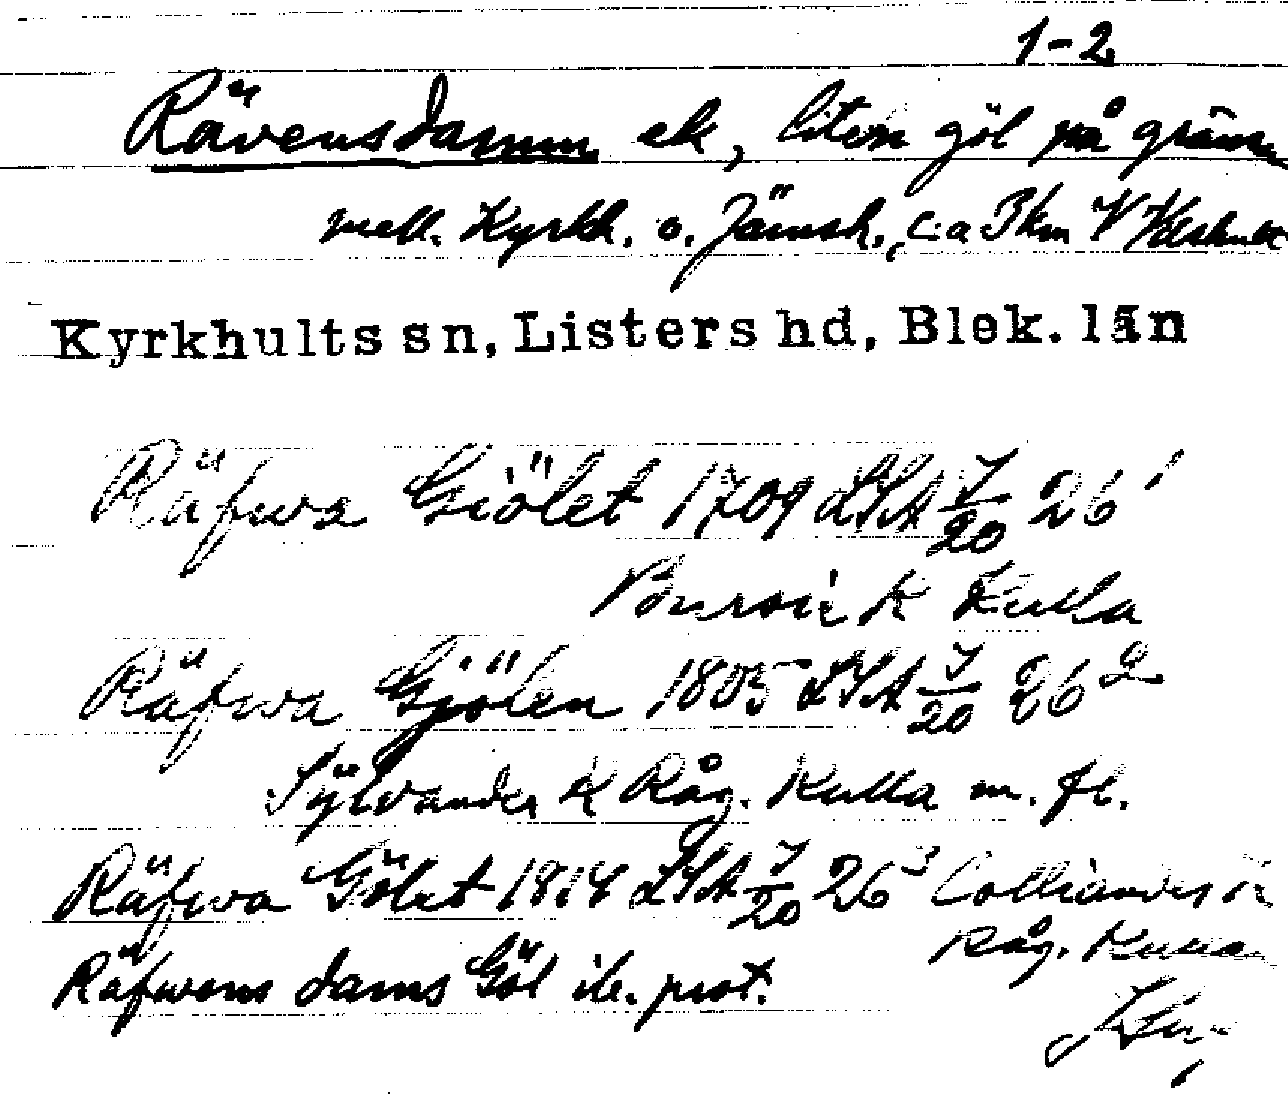 1-2
Rävensdamm ek, liten göl på gränsen
mell. Kyrkh. o. Jämsh., c:a 3 km V
Kyrkhults sn, Listers hd, Blek. län
Räfwa Giölet 1709 LSA 7/20 26¹
K Kulla
Räfwa Gjölen 1805 LSA 7/20 26²
Sylvander K Råg. Kulla m. fl.
Räfwa Gölet 1818 LSA 7/20 26³ Colliander K
Råg. Kulla
Räfwens dams Göl ib. prot.